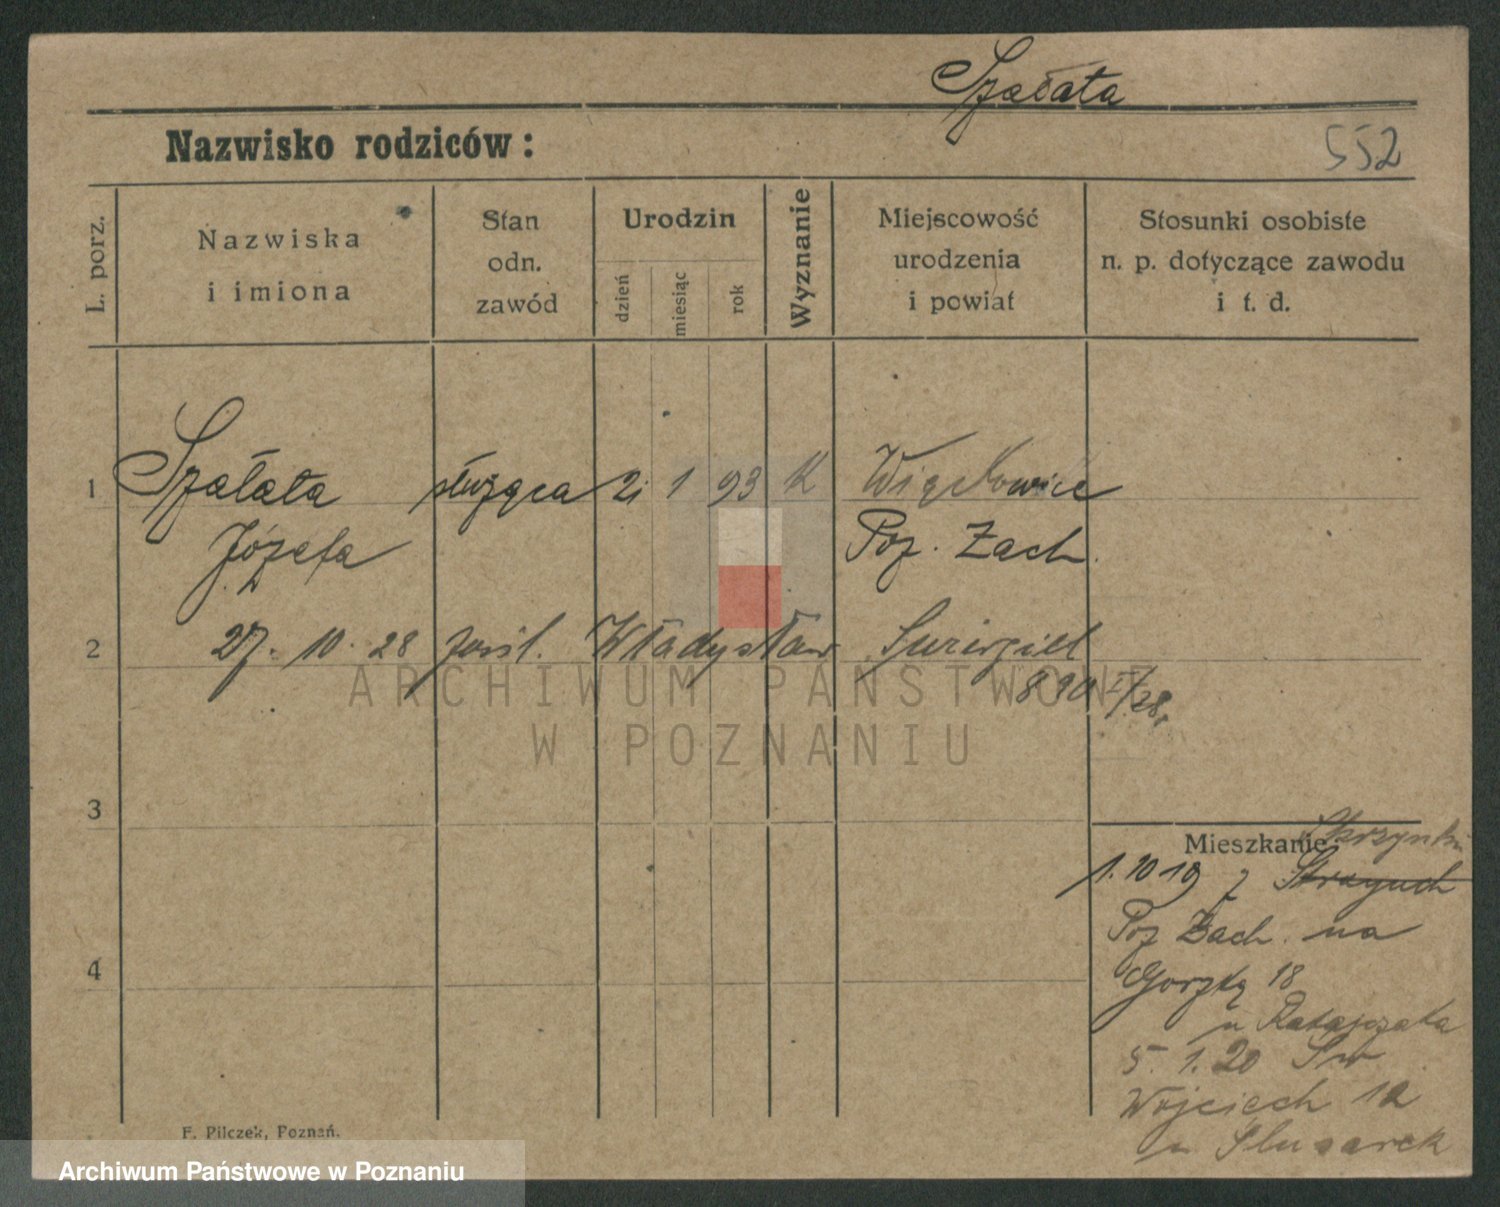 Szałata
Nazwisko rodziców:
552
L. porz.
Nazwiska
i imiona
Stan
odn.
zawód
Urodzin
dzień
miesiąc
rok
Wyznanie
Miejscowość
urodzenia
i powiat
Stosunki osobiste
n. p. dotyczące zawodu
i t. d.
1 Szałata służąca 2 1 93 K Więckowice
Józefa Poz. Zach.
2 27. 10. 28 pośl. Władysław
890 I/28.
3
Mieszkanie:
1.10 19 z
Poz Zach. na
4
Gorzką 18
u Ratajczaka
5. 1. 20 Sw
Wojciech
u Slusarek
F. Pilczek, Poznań.
ARCHIWUM PAŃSTWOWE
W POZNANIU
Archiwum Państwowe w Poznaniu